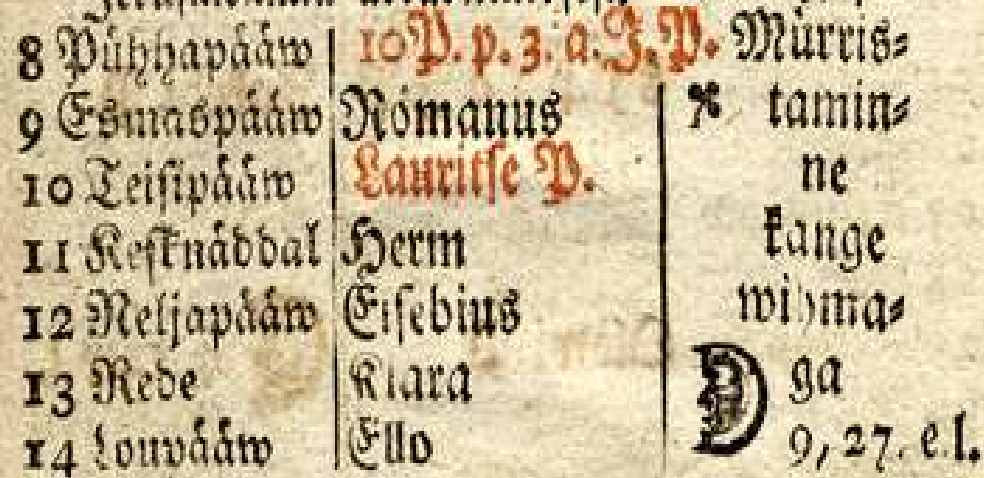 8 Pühhapääw 10 P. p. 3. a. J. P. Mürris⸗
9 Esmaspääw Romanus tamin⸗
10 Teisipääw Lauritse P. ne
11 Kesknäddal Herm kange
12 Neljapääw Eisebius wihma⸗
13 Rede Klara ga
14 Loupääw Ello 9, 27. e. l.